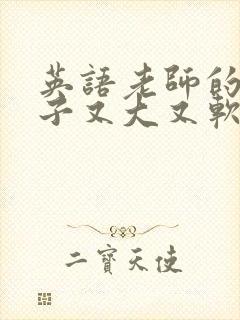 英語老師的
子又大又軟
二寶天使